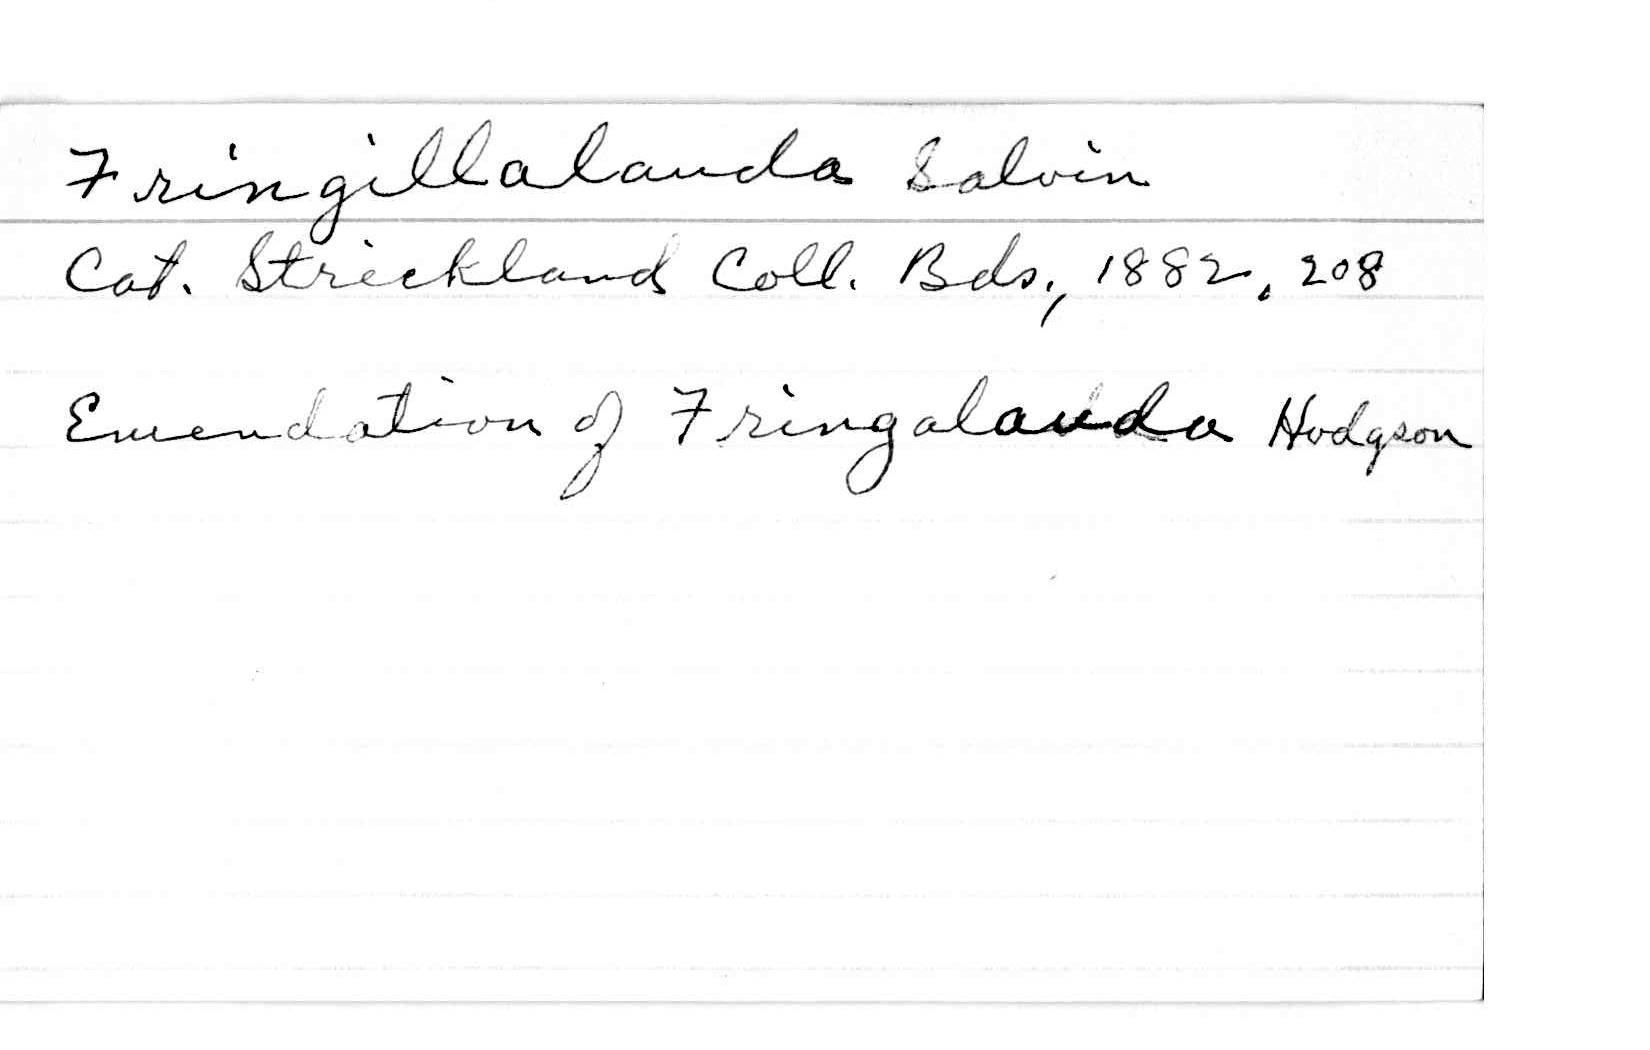 Fringillalauda Salvin
Cat. Strickland Coll. Bds., 1882, 208
Emendation of Fringalauda Hodgson